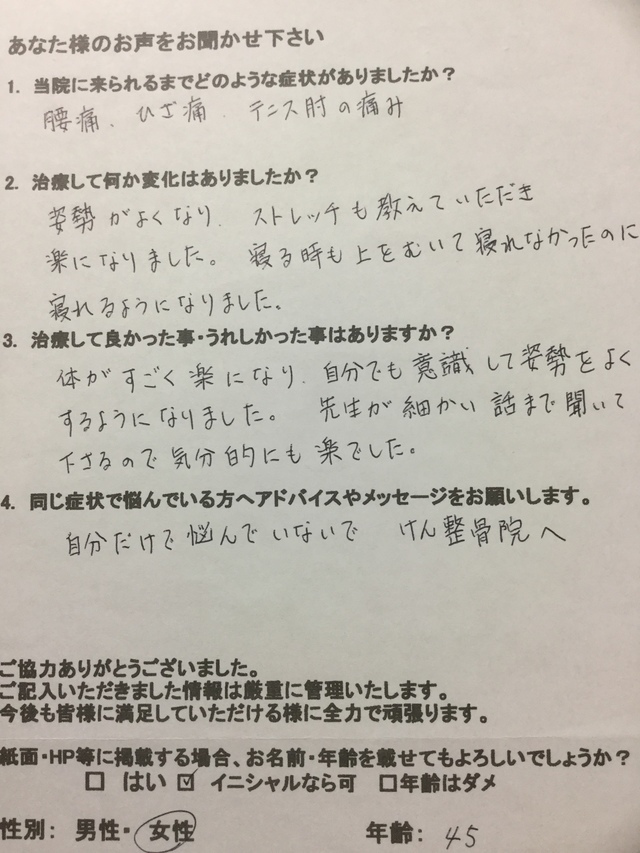 あなた様のお声をお聞かせ下さい
1. 当院に来られるまでどのような症状がありましたか？
腰痛、ひざ痛、テニス肘の痛み
2. 治療して何か変化はありましたか？
姿勢がよくなり、ストレッチも教えていただき
楽になりました。寝る時も上をむいて寝れなかったのに
寝れるようになりました。
3. 治療して良かった事・うれしかった事はありますか？
体がすごく楽になり、自分でも意識して姿勢をよく
するようになりました。先生が細かい話まで聞いて
下さるので気分的にも楽でした。
4. 同じ症状で悩んでいる方へアドバイスやメッセージをお願いします。
自分だけで悩んでいないで けん整骨院へ
ご協力ありがとうございました。
ご記入いただきました情報は厳重に管理いたします。
今後も皆様に満足していただける様に全力で頑張ります。
紙面・HP等に掲載する場合、お名前・年齢を載せてもよろしいでしょうか？
□ はい ☑ イニシャルなら可 □年齢はダメ
性別： 男性・ 女性 年齢： 45